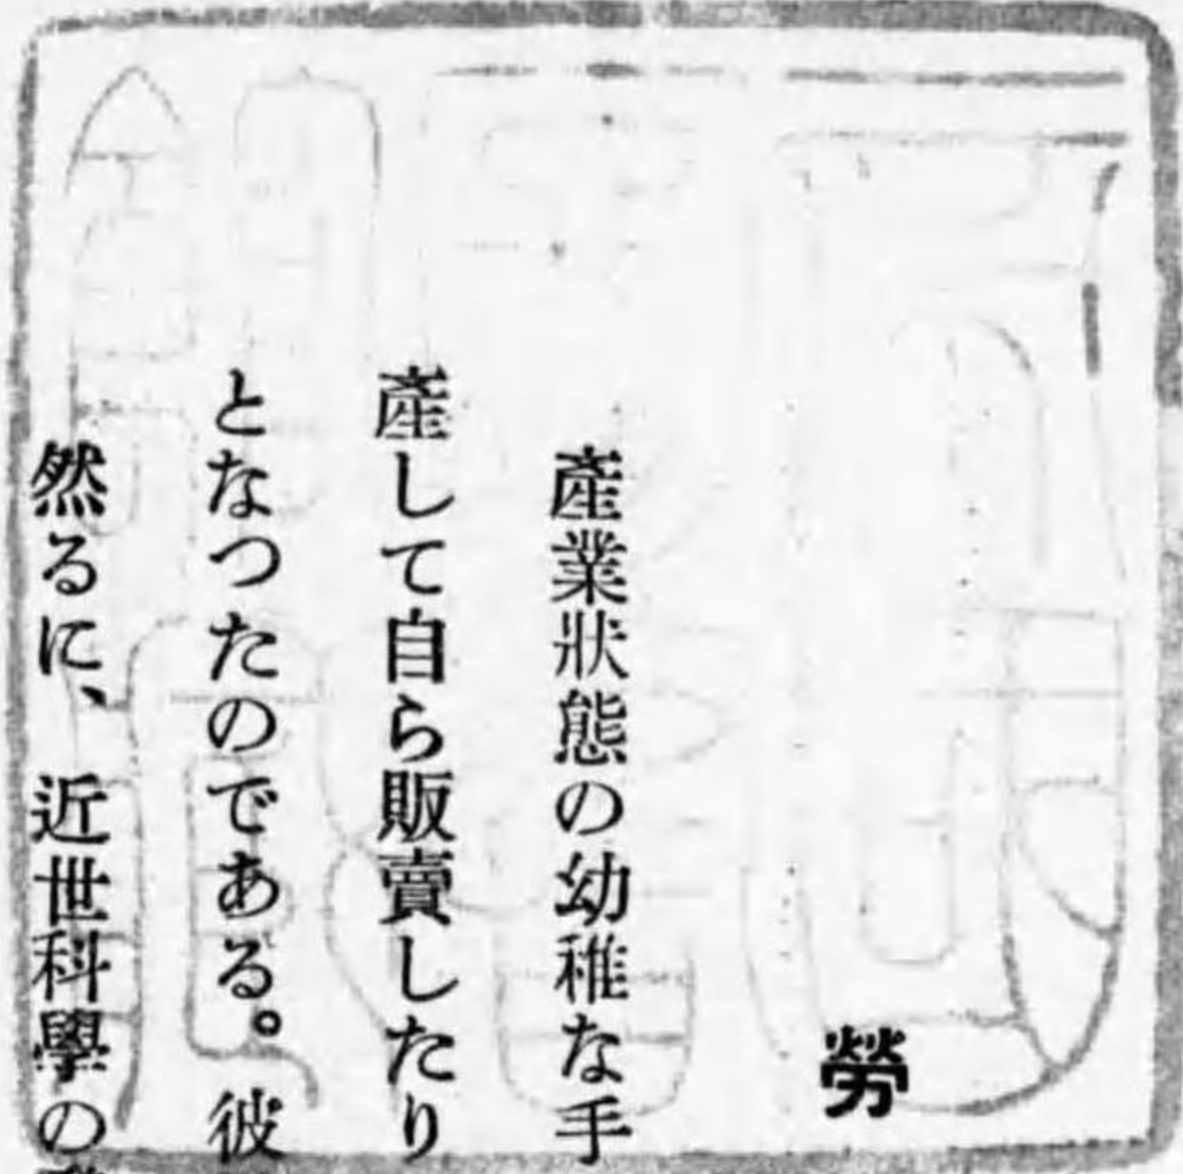 勞
產業狀態の幼稚な手
產して自ら販賣したり
となつたのである。彼
然るに、近世科學の